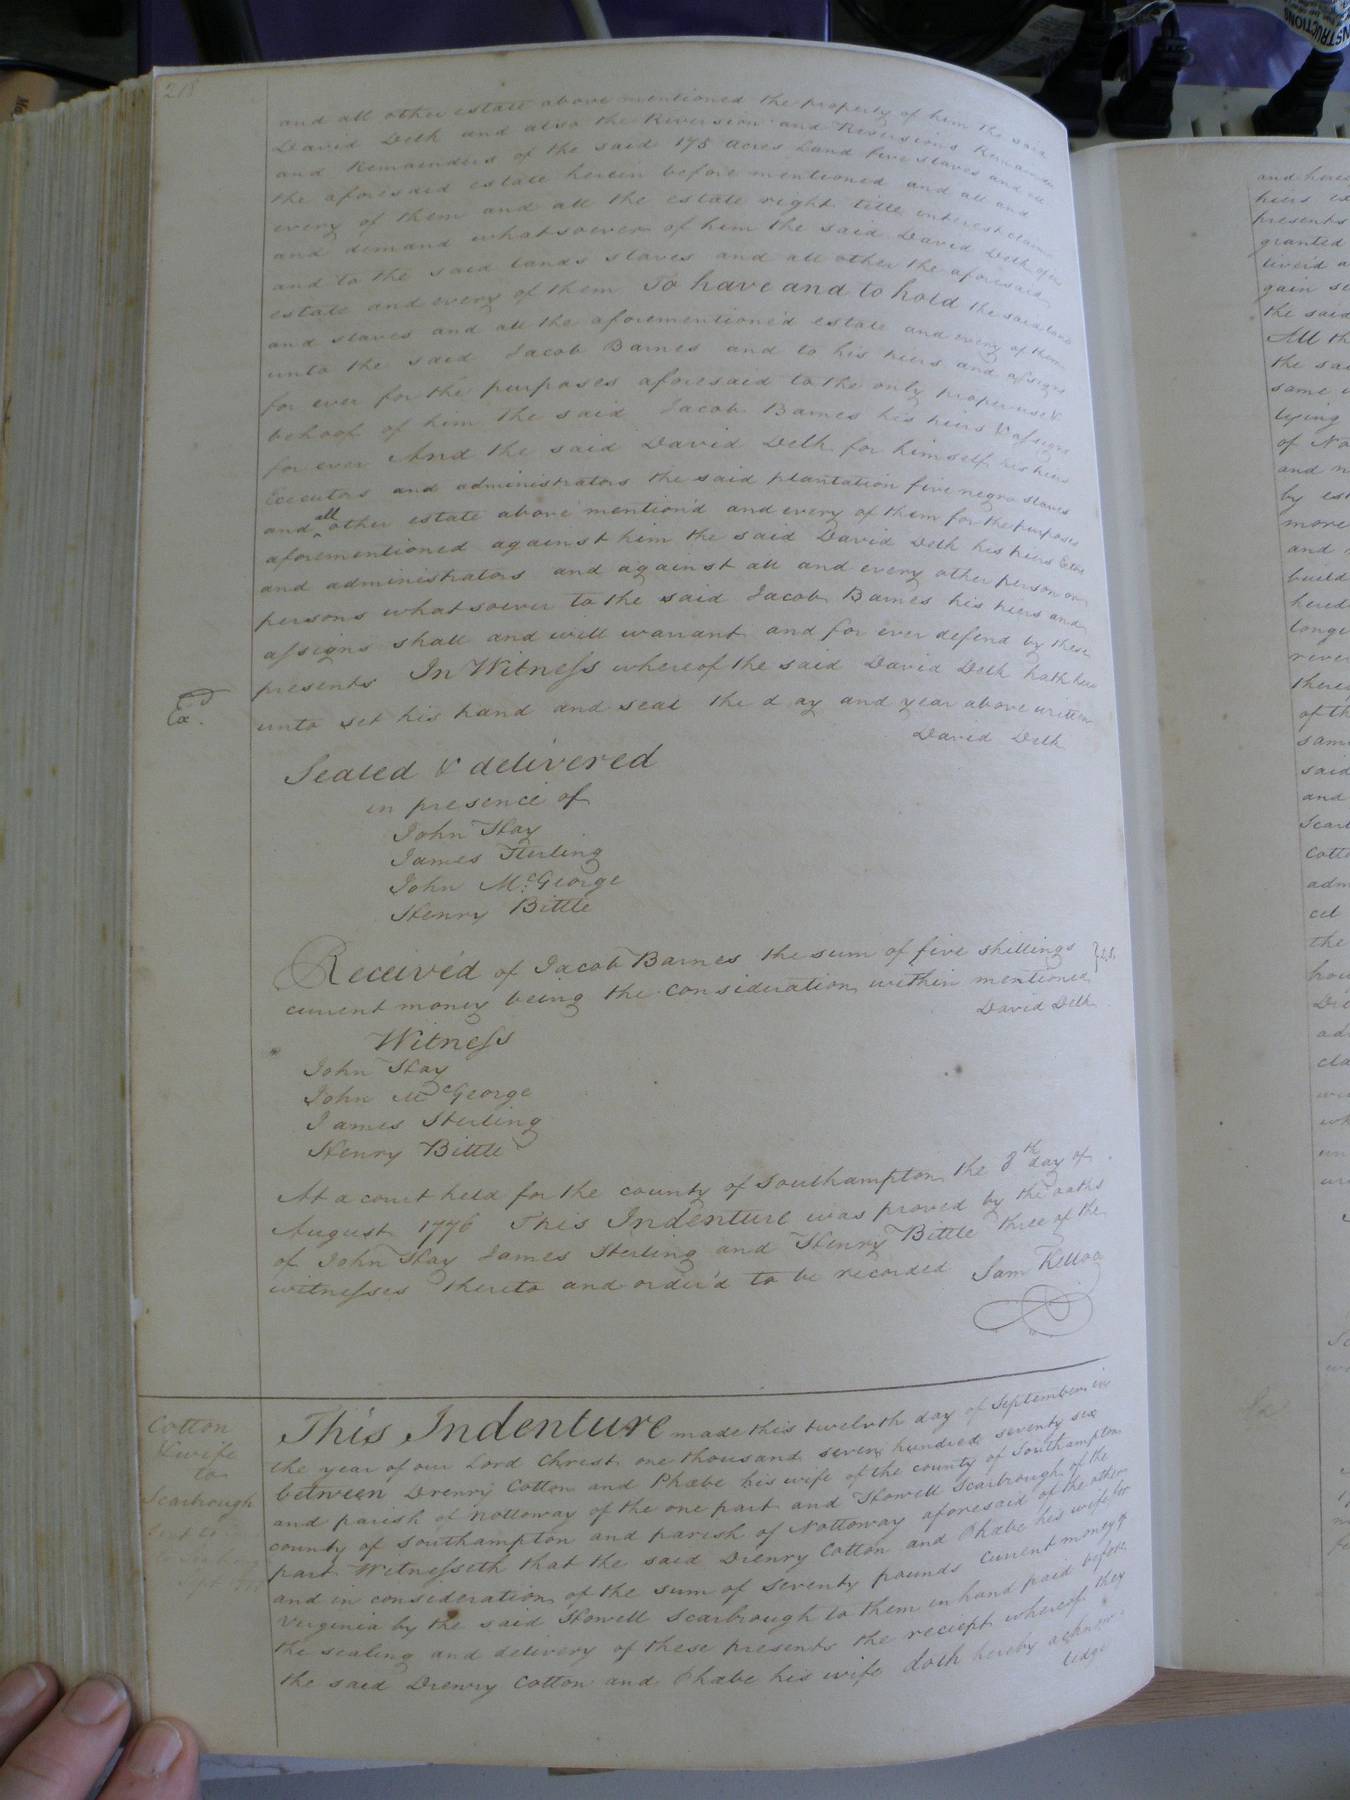 218
and all other estate above mentioned the property of him the said
David Delk and also the Reversion and Reversions Remainder
and Remainders of the said 175 acres Land five slaves and all
the aforesaid estate herein before mentioned and all and
every of them and all the estate right title interest claim
and demand whatsoever of him the said David Delk of in
and to the said lands slaves and all other the aforesaid
estate and every of them To have and to hold the said land
and slaves and all the aforementioned estate and every of them
unto the said Jacob Barnes and to his heirs and assigns
for ever for the purposes aforesaid to the only proper use &
behoof of him the said Jacob Barnes his heirs & assigns
for ever And the said David Delk for himself his heirs
Executors and administrators the said plantation five negro slaves
and all other estate above mention'd and every of them for the purposes
aforementioned against him the said David Delk his heirs Exrs
and administrators and against all and every other person or
persons whatsoever to the said Jacob Barnes his heirs and
assigns shall and will warrant and for ever defend by these
presents In Witness whereof the said David Delk hath here
unto set his hand and seal the day and year above written
David Delk
Sealed & delivered
in presence of
John Hay
James Sterling
John McGeorge
Henry Bittle
Received of Jacob Barnes the sum of five shillings
current money being the consideration within mentioned
David Delk
Witness
John Hay
John McGeorge
James Sterling
Henry Bittle
At a court held for the county of Southampton the 8th day of
August 1776 This Indenture was proved by the oaths
of John Hay James Sterling and Henry Bittle three of the
witnesses thereto and order'd to be recorded Sam Kello
Cotton
& wife
to
Scarbrough
This Indenture made this twelvth day of September in
the year of our Lord Christ one thousand seven hundred seventy six
between Drenry Cotton and Phœbe his wife of the county of Southampton
and parish of Nottoway of the one part and Howell Scarbrough of the
county of Southampton and parish of Nottoway aforesaid of the other
part Witnesseth that the said Drenry Cotton and Phœbe his wife for
and in consideration of the sum of seventy pounds current money of
Virginia by the said Howell Scarbrough to them in hand paid before
the sealing and delivery of these presents the reciept whereof they
the said Drenry Cotton and Phœbe his wife doth hereby acknow
ledge